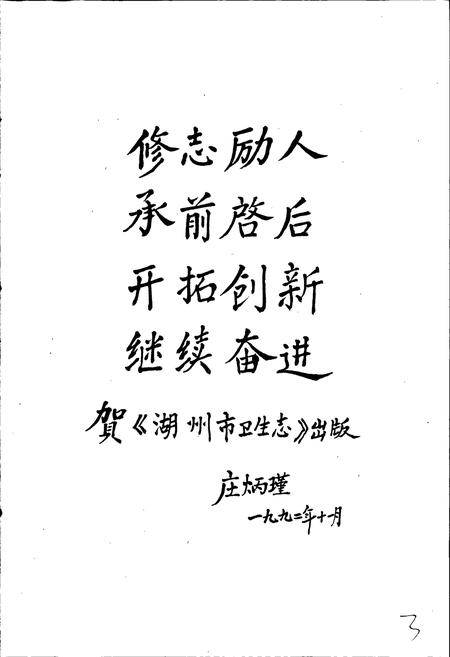 修志励人
承前启后
开拓创新
继续奋进
贺《湖州市卫生志》出版
庄炳瑾
一九九二年十月
3